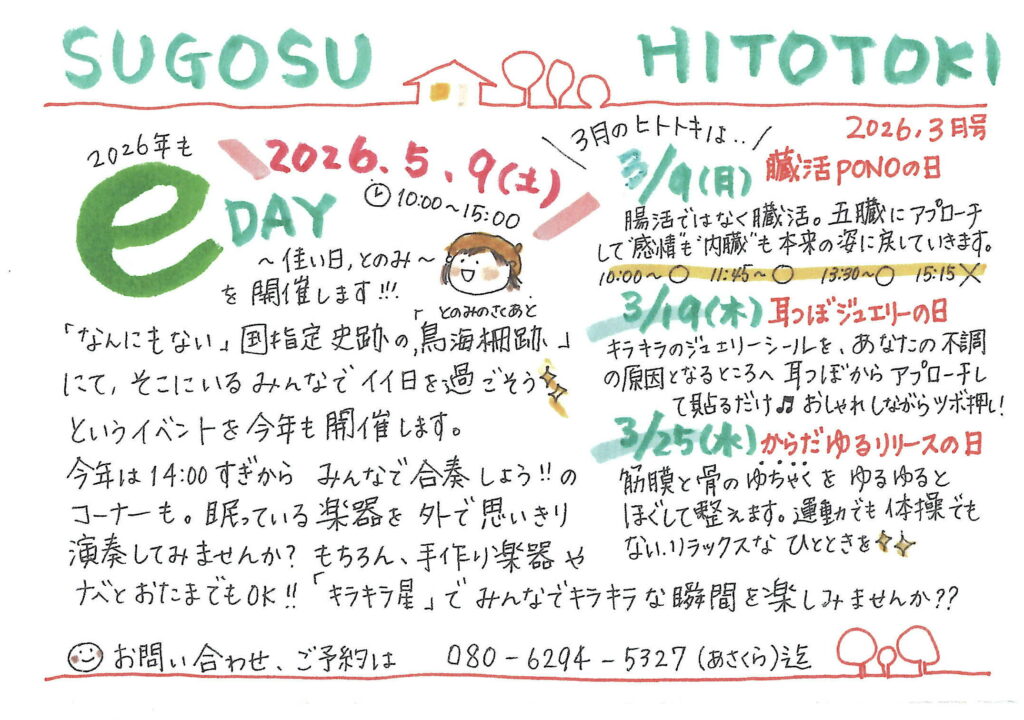 SUGOSU HITOTOKI
2026.3月号
2026年も
e DAY
2026.5.9(土)
10:00~15:00
~佳い日,とのみ~
を開催します!!!
「とのみのさくあと」
「なんにもない」国指定史跡の「鳥海柵跡」
にて,そこにいるみんなでイイ日を過ごそう
というイベントを今年も開催します。
今年は14:00すぎから みんなで合奏しよう!!の
コーナーも。眠っている楽器を外で思いきり
演奏してみませんか?もちろん、手作り楽器や
ナベとおたまでもOK!!「キラキラ星」でみんなでキラキラな瞬間を楽しみませんか??
3月のヒトトキは..
3/9(月) 臓活PONOの日
腸活ではなく臓活。五臓にアプローチ
して"感情"も"内臓"も本来の姿に戻していきます。
10:00~○ 11:45~○ 13:30~○ 15:15×
3/19(木) 耳つぼジュエリーの日
キラキラのジュエリーシールを、あなたの不調
の原因となるところへ耳つぼからアプローチし
て貼るだけ♫おしゃれしながらツボ押し!
3/25(水) からだゆるリリースの日
筋膜と骨のゆちゃくをゆるゆると
ほぐして整えます。運動でも体操でも
ない.リラックスなひとときを
お問い合わせ、ご予約は 080-6294-5327(あさくら)迄